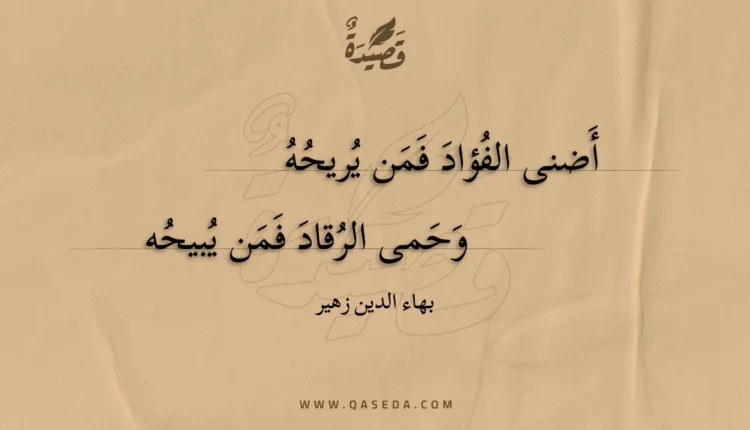 قَصِيْدَةٌ
أَضنى الفُؤادَ فَمَن يُريحُهُ
وَحَمى الرُقادَ فَمَن يُبيحُه
بهاء الدين زهير
WWW.QASEDA.COM